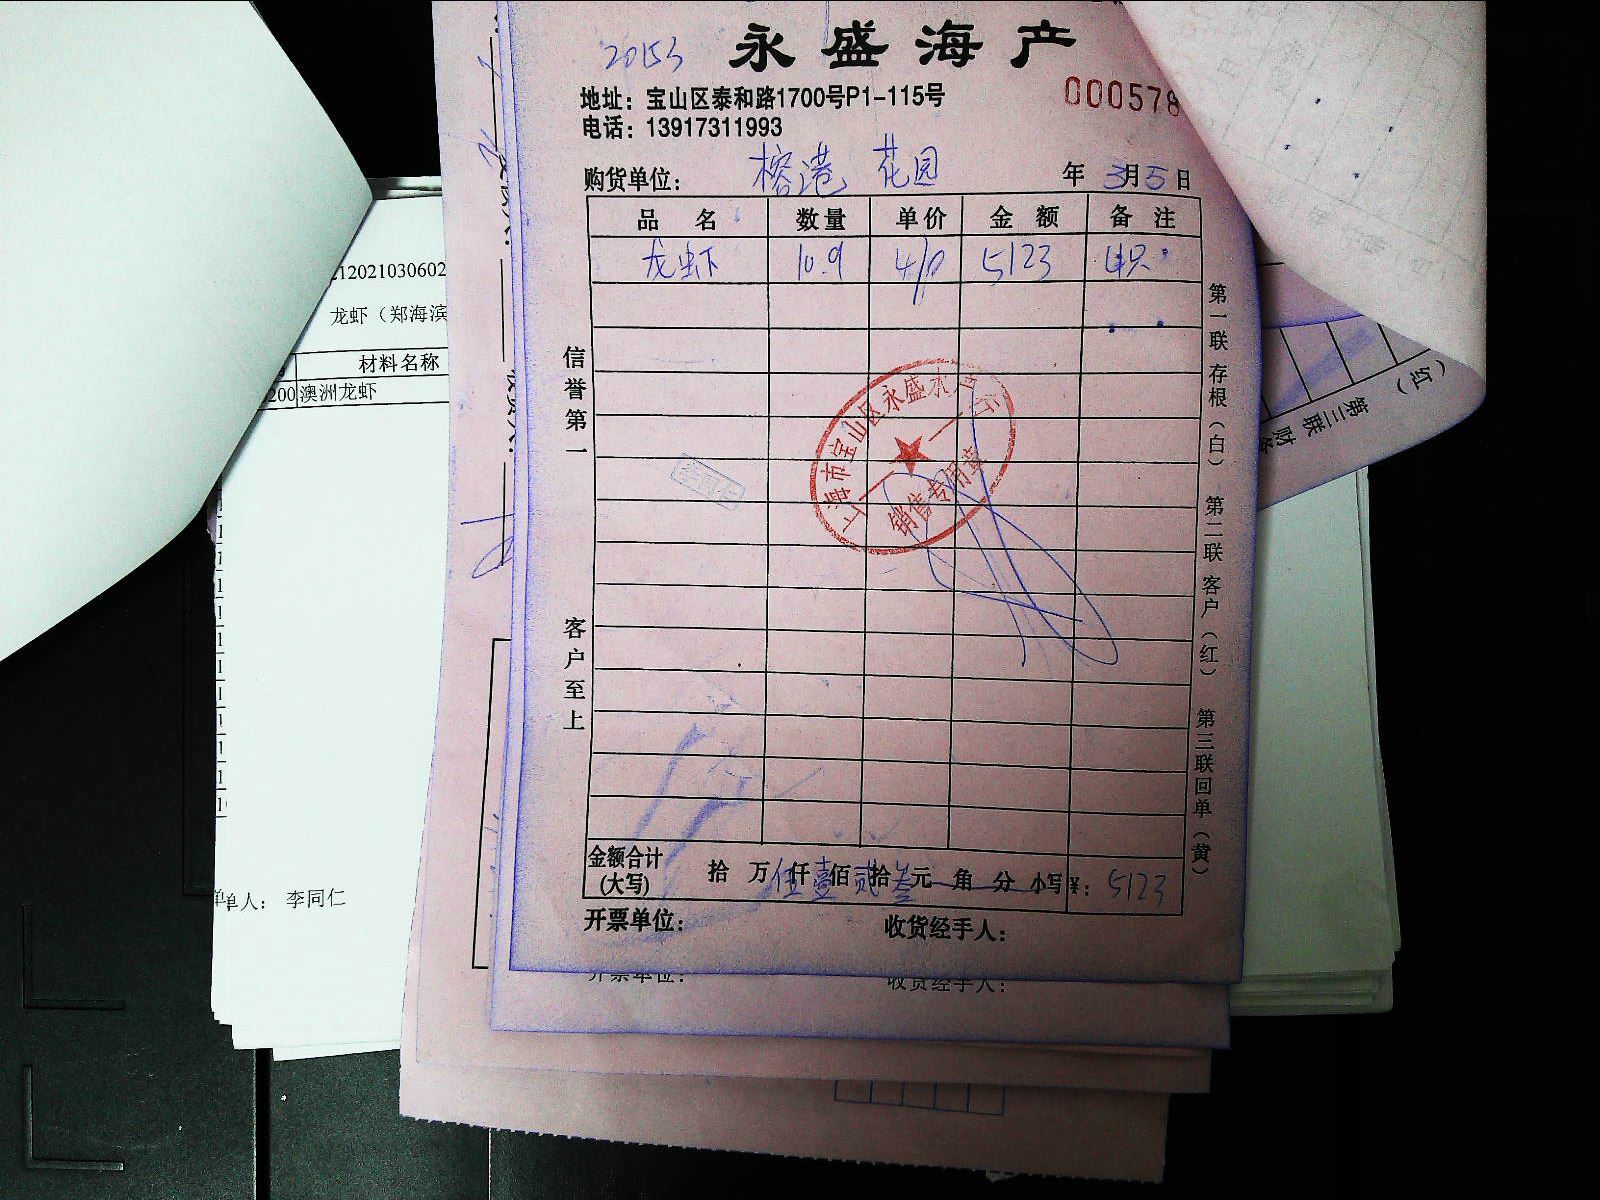 20153
永盛海产
000578
地址：宝山区泰和路1700号P1-115号
电话：13917311993
购货单位：榕港 花园 年 3月5日
品 名 数量 单价 金 额 备 注
龙虾 10.9 470 5123 4只
信誉第一
客户至上
上海市宝山区永盛水产行
销售专用章
第一联 存根（白） 第二联 客户（红） 第三联 回单（黄）
金额合计（大写） 拾 万 伍仟 壹佰 贰拾 叁元 角 分 小写¥：5123
开票单位： 收货经手人：
开票单位： 收货经手人：
212021030602
龙虾（郑海滨
材料名称
200 澳洲龙虾
单人： 李同仁
第三联 财务
（红）